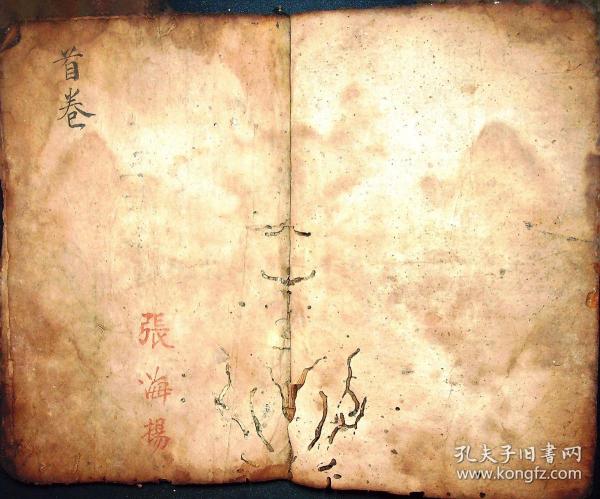 首卷
張海揚
孔夫子旧书网
www.kongfz.com